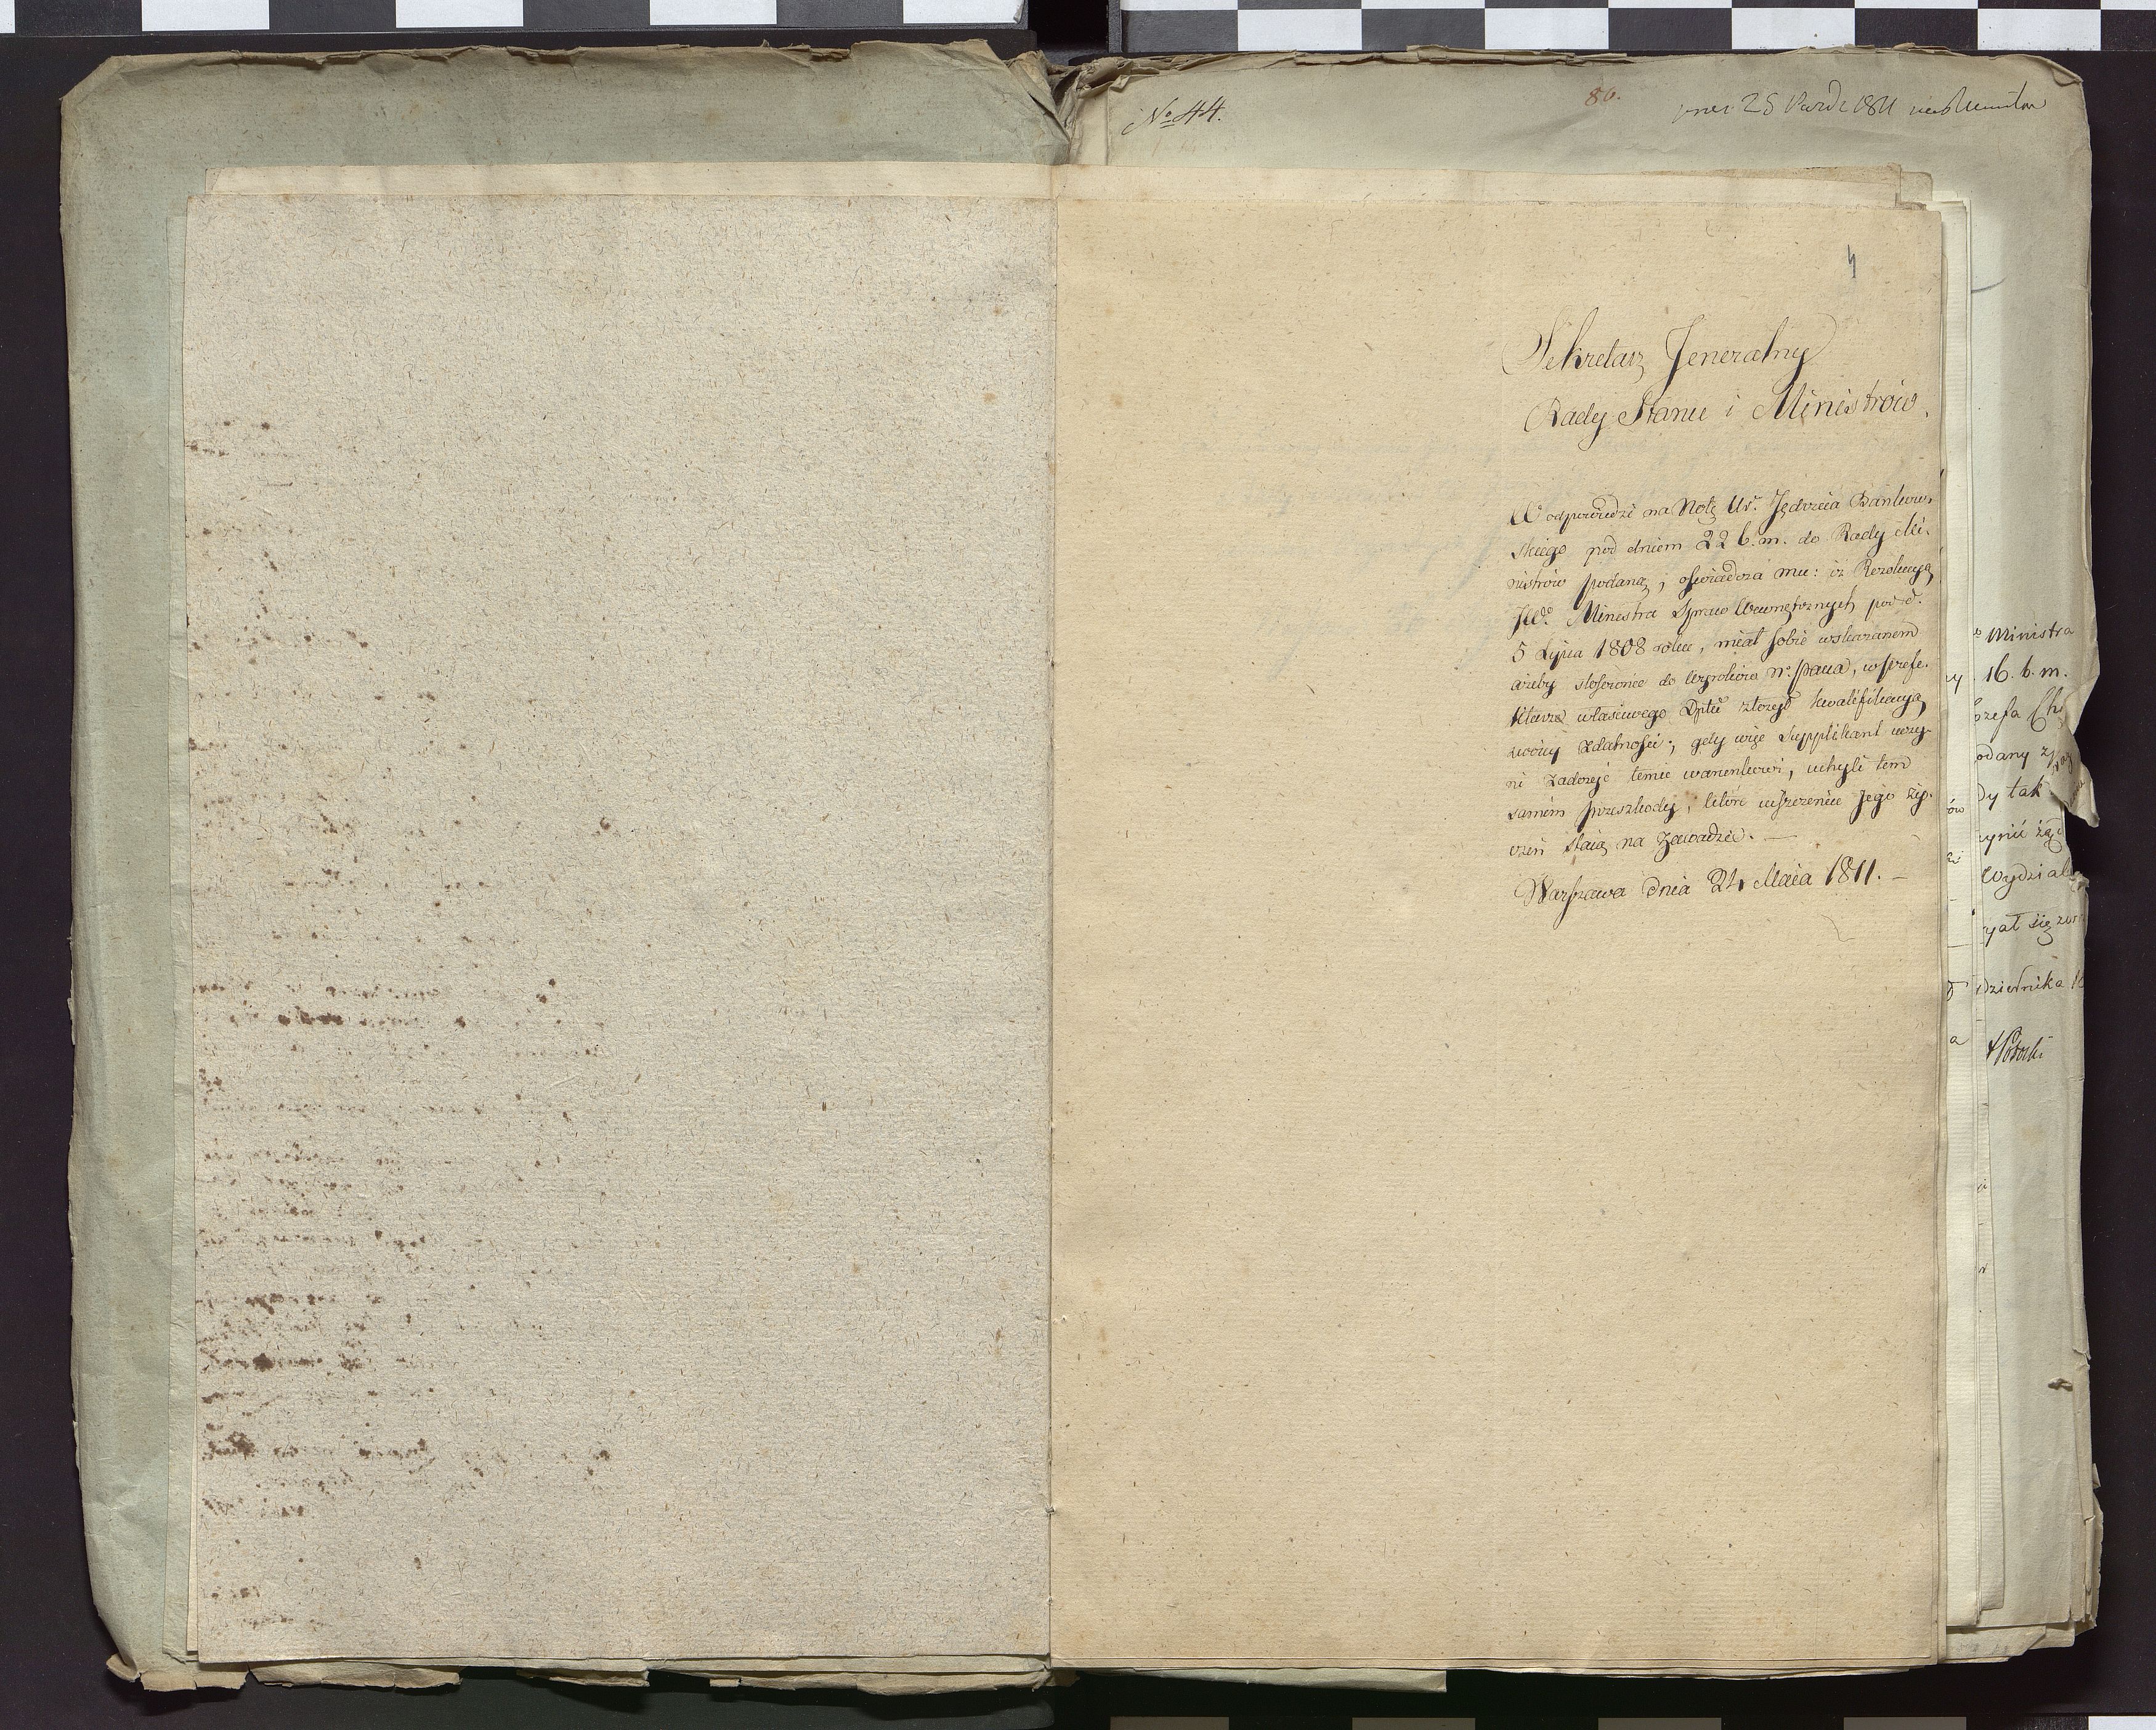 No 44.
86.
25 1811
4
Sekretarz Jeneralny
Rady Stanu i Ministrów.
W odpowiedzi na Notę Ur. Jędrzeia Bankow-
skiego pod dniem 22 b. m. do Rady Mi-
nistrów podaną, oświadcza mu: iż Rezolucyą
JWo. Ministra Spraw Wewnętrznych pod d.
5 Lipca 1808 roku, miał sobie wskazanem
ażeby stosownie do Wyroków Nro. Pana, w Prefe-
kturze właściwego Dpttu złożył kwalifikacyą
swoiey zdatności; gdy więc Supplikant uczy-
ni zadosyć temu warunkowi, uchyli tem
samem przeszkody, które uiszczeniu Jego ży-
czeń staią na zawadzie. —
Warszawa dnia 24 Maia 1811. —
Ministra
16. b. m.
ozefa Ch
odany z
dy tak
ynić żąd
Wydział
yał się
dziernika